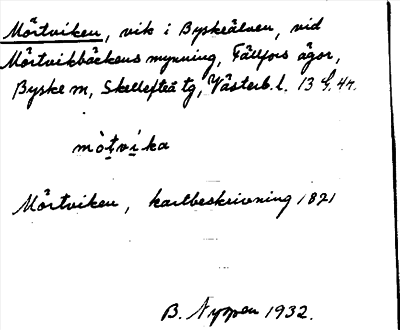 Mörtviken, vik i Byskeälven, vid
Mörtvikbäckens mynning, Fällfors ägor,
Byske m, Skellefteå tg, Västerb. l. 13 G. 4r.
mò̀ṭvi̱ka
Mörtviken, kartbeskrivning 1821
B. Nyman 1932.